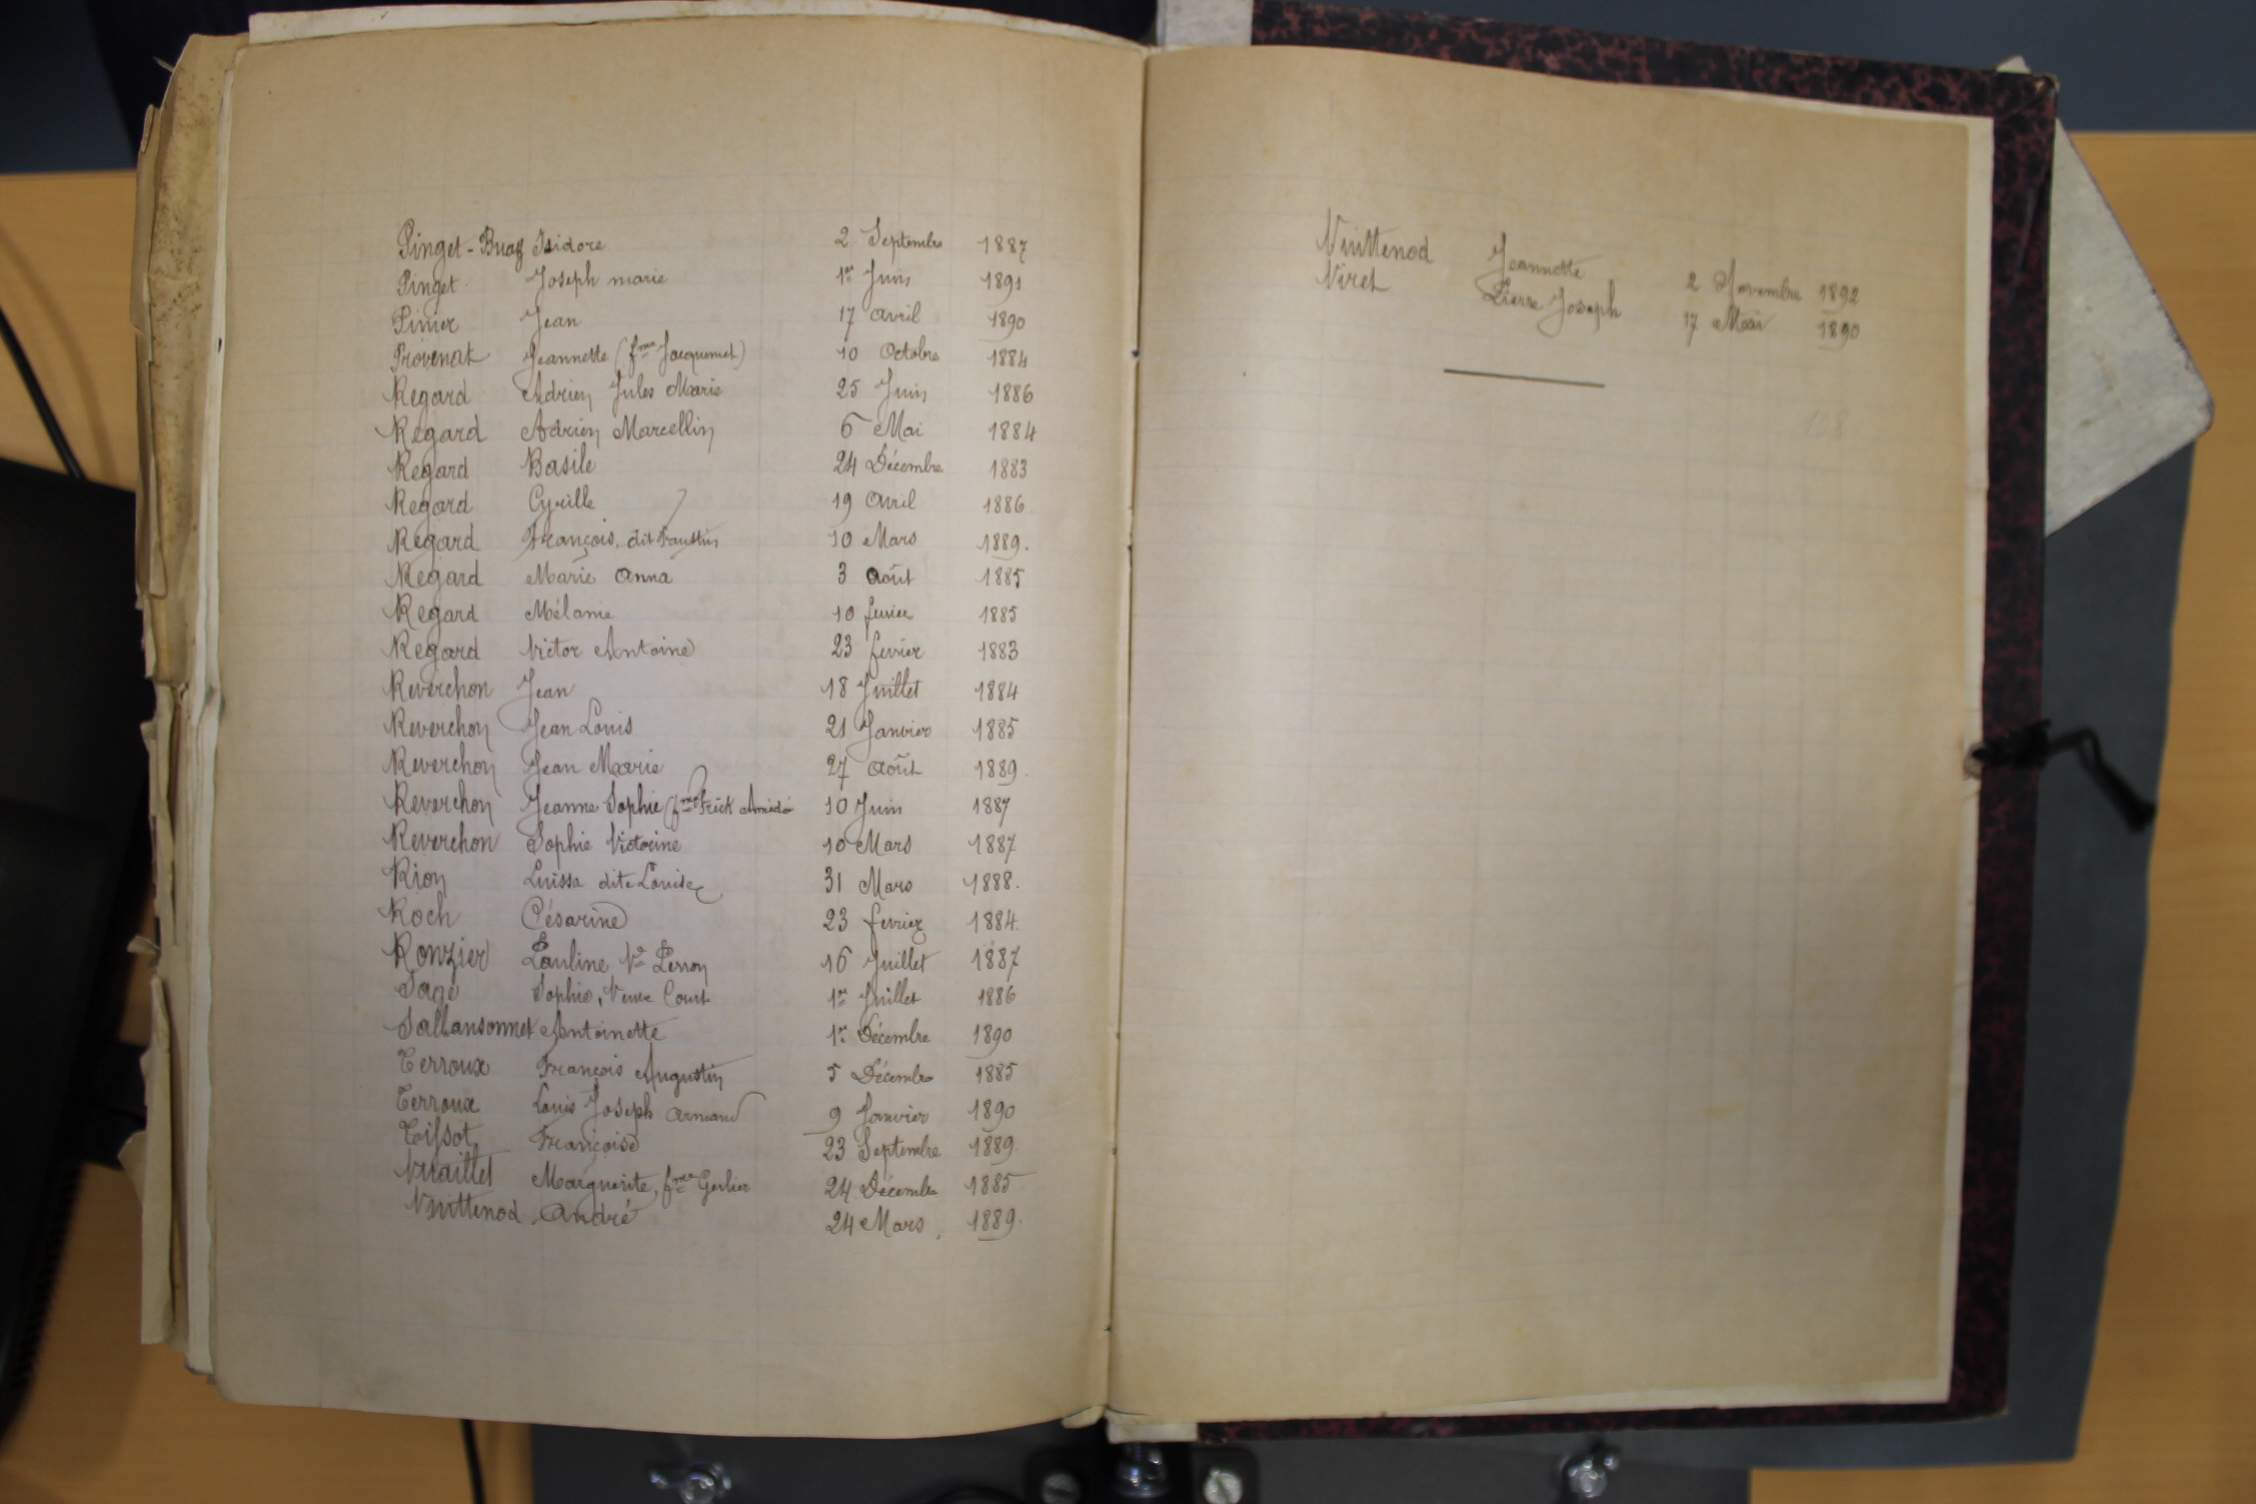 Pinget-Buaz Isidore 2 Septembre 1887
Pinget Joseph marie 1er Juin 1891
Pinier Jean 17 avril 1890
Provenat Jeannette (fme Jacquemet) 10 Octobre 1884
Regard Adrien Jules Marie 25 Juin 1886
Regard Adrien Marcellin 6 Mai 1884
Regard Basile 24 Décembre 1883
Regard Cyrille 19 avril 1886
Regard François, dit Faustin 10 Mars 1889.
Regard Marie anna 3 août 1885
Regard Mélanie 10 fevrier 1885
Regard Victor Antoine 23 fevrier 1883
Reverchon Jean 18 Juillet 1884
Reverchon Jean Louis 21 Janvier 1885
Reverchon Jean Marie 27 août 1889.
Reverchon Jeanne Sophie (fme Frick Amédé 10 Juin 1887
Reverchon Sophie Victorine 10 Mars 1887
Rion Luissa dite Louise 31 Mars 1888.
Roch Césarine 23 fevrier 1884.
Ronzier Pauline Ve Perron 16 Juillet 1887
Sage Sophie, Veuve Court 1er Juillet 1886
Sallansonnet Antoinette 1er Décembre 1890
Terroux François Augustin 5 Décembre 1885
Terroux Louis Joseph armand 9 Janvier 1890
Tissot Françoise 23 Septembre 1889.
Vuaillet Marguerite, fme Gerlier 24 Décembre 1885
Vuittenod André 24 Mars, 1889.
Vuittenod Jeannette 2 Novembre 1892
Viret Pierre Joseph 17 Mai 1890